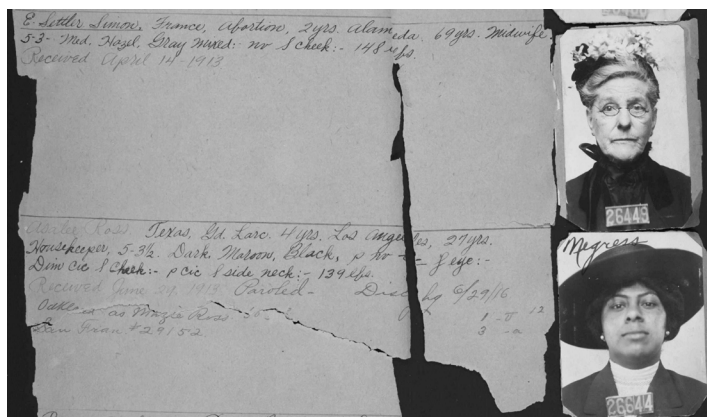 E. Settler Simon, France, Abortion, 2yrs. Alameda. 69yrs. Midwife,
5-3- Med. Hazel, Gray Mixed:- no S cheek:- 148 lbs.
Received April 14-1913
26449
Ross, Texas, Gd. Larc. 4yrs. Los Angeles, 27yrs.
Housekeeper, 5-3½. Dark Maroon, Black, p no eye:-
Dim Cic S Cheek:- p cic S side neck:- 139 lbs.
Received June 1913 Paroled- Dischg 6/29/16
as Mazie Ross
San Fran # 29152.
12
3 -a
Negress
26644